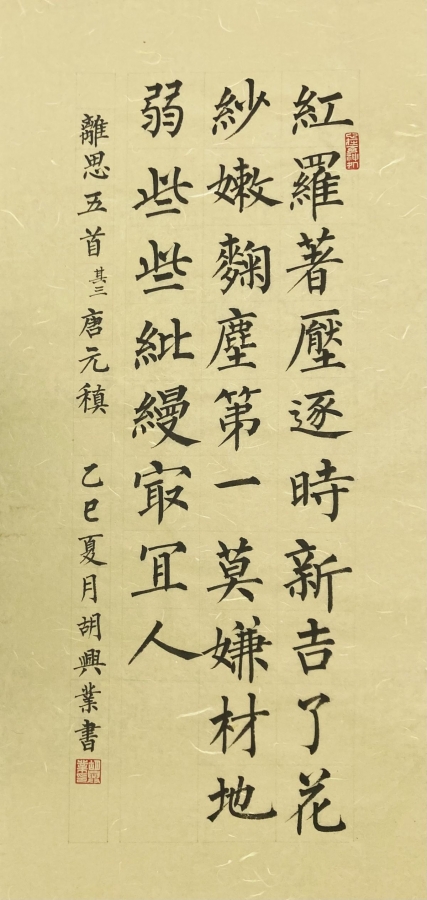 紅羅著壓逐時新吉了花
紗嫩麴塵第一莫嫌材地
弱些些紕縵㝡冝人
離思五首其三唐元稹 乙巳夏月胡興業書